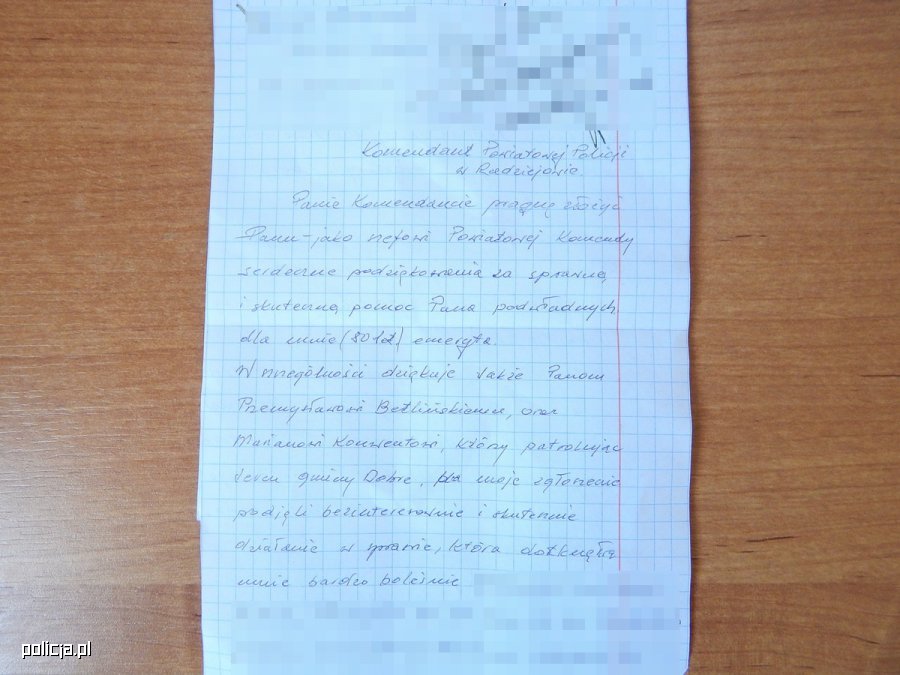 Komendant Powiatowej Policji
w Radziejowie
Panie Komendancie pragnę złożyć
Panu - jako szefowi Powiatowej Komendy
serdeczne podziękowania za sprawną
i skuteczną pomoc Pana podwładnych
dla mnie (80 lat) emeryta.
W szczególności dziękuję także Panom
Przemysławowi Betlińskiemu, oraz
Marianowi Konwentowi, którzy patrolując
teren gminy Dobre, na moje zgłoszenie
podjęli bezinteresownie i skutecznie
działanie w sprawie, która dotknęła
mnie bardzo boleśnie
policja.pl